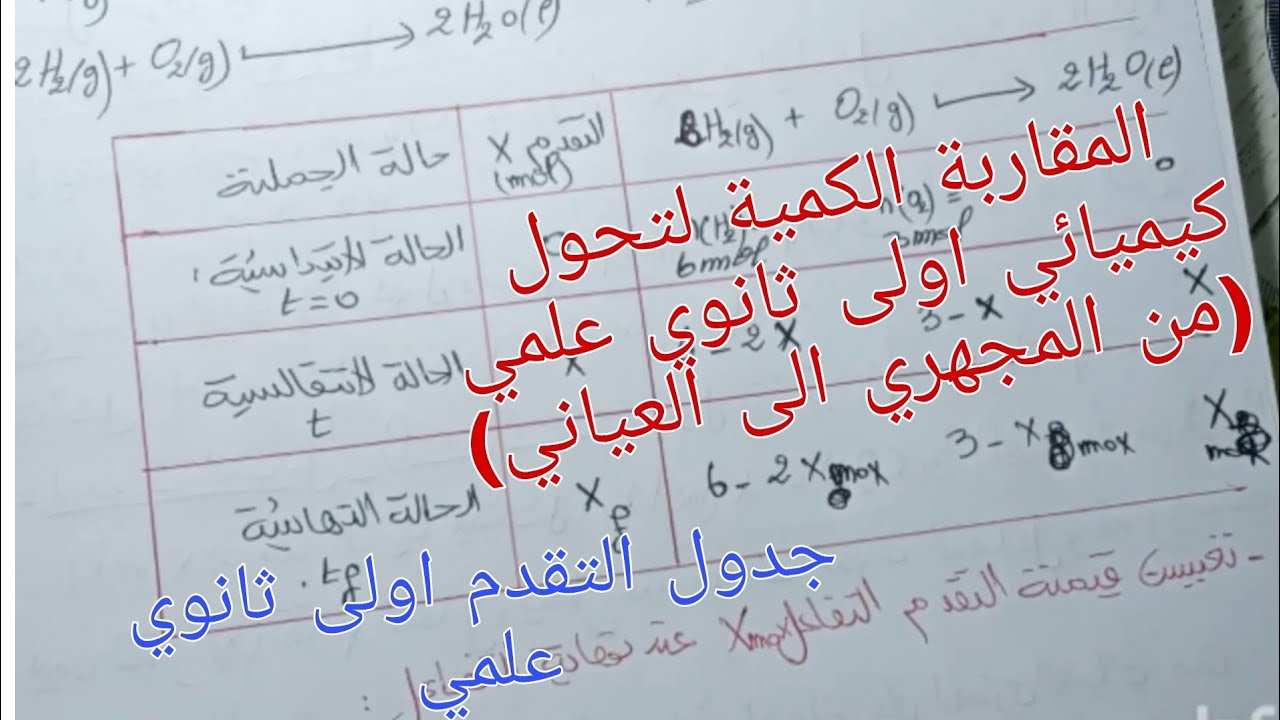 2H₂(g) + O₂(g) ⟶ 2H₂O(l)
حالة الجملة
التقدم X (mol)
H₂(g) + O₂(g) ⟶ 2H₂O(l)
الحالة الابتدائية
t=0
6mol
n(O₂) =
3mol
0
الحالة الانتقالية
t
X
- 2X
3 - X
X
الحالة النهائية
tf
Xf
6 - 2Xmax
3 - Xmax
Xmax
- تعيين قيمة التقدم Xmax عند نهاية
المقاربة الكمية لتحول
كيميائي اولى ثانوي علمي
(من المجهري الى العياني)
جدول التقدم اولى ثانوي
علمي